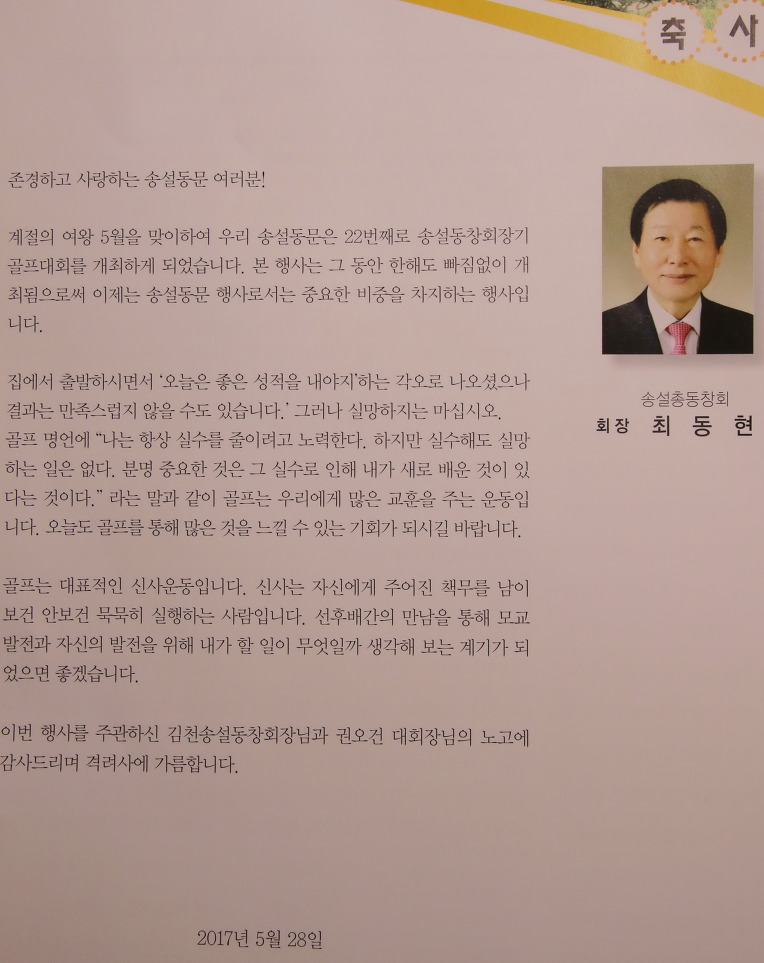 축 사
존경하고 사랑하는 송설동문 여러분!
계절의 여왕 5월을 맞이하여 우리 송설동문은 22번째로 송설동창회장기
골프대회를 개최하게 되었습니다. 본 행사는 그 동안 한해도 빠짐없이 개
최됨으로써 이제는 송설동문 행사로서는 중요한 비중을 차지하는 행사입
니다.
집에서 출발하시면서 ‘오늘은 좋은 성적을 내야지’하는 각오로 나오셨으나
결과는 만족스럽지 않을 수도 있습니다.’ 그러나 실망하지는 마십시오.
골프 명언에 “나는 항상 실수를 줄이려고 노력한다. 하지만 실수해도 실망
하는 일은 없다. 분명 중요한 것은 그 실수로 인해 내가 새로 배운 것이 있
다는 것이다.” 라는 말과 같이 골프는 우리에게 많은 교훈을 주는 운동입
니다. 오늘도 골프를 통해 많은 것을 느낄 수 있는 기회가 되시길 바랍니다.
골프는 대표적인 신사운동입니다. 신사는 자신에게 주어진 책무를 남이
보건 안보건 묵묵히 실행하는 사람입니다. 선후배간의 만남을 통해 모교
발전과 자신의 발전을 위해 내가 할 일이 무엇일까 생각해 보는 계기가 되
었으면 좋겠습니다.
이번 행사를 주관하신 김천송설동창회장님과 권오건 대회장님의 노고에
감사드리며 격려사에 가름합니다.
2017년 5월 28일
송설총동창회
회장 최 동 현